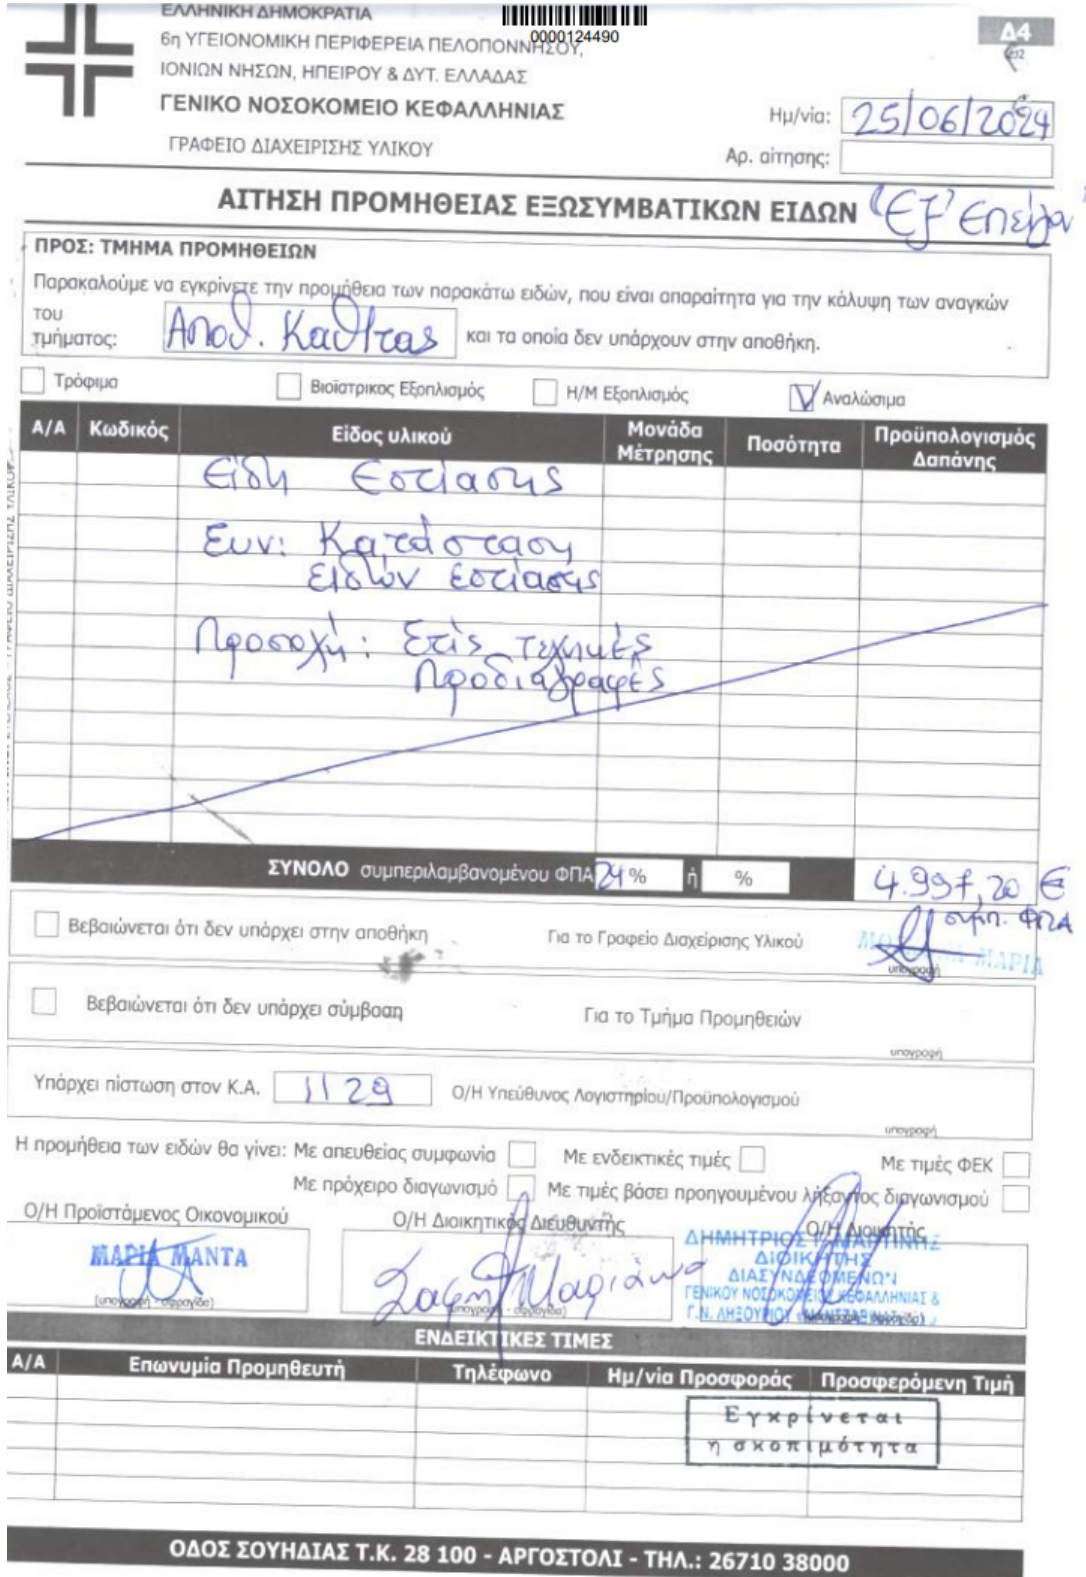 ΕΛΛΗΝΙΚΗ ΔΗΜΟΚΡΑΤΙΑ
0000124490
6η ΥΓΕΙΟΝΟΜΙΚΗ ΠΕΡΙΦΕΡΕΙΑ ΠΕΛΟΠΟΝΝΗΣΟΥ,
ΙΟΝΙΩΝ ΝΗΣΩΝ, ΗΠΕΙΡΟΥ & ΔΥΤ. ΕΛΛΑΔΑΣ
ΓΕΝΙΚΟ ΝΟΣΟΚΟΜΕΙΟ ΚΕΦΑΛΛΗΝΙΑΣ
ΓΡΑΦΕΙΟ ΔΙΑΧΕΙΡΙΣΗΣ ΥΛΙΚΟΥ
Δ4
Ημ/νία: 25/06/2024
Αρ. αίτησης:
ΑΙΤΗΣΗ ΠΡΟΜΗΘΕΙΑΣ ΕΞΩΣΥΜΒΑΤΙΚΩΝ ΕΙΔΩΝ
ΠΡΟΣ: ΤΜΗΜΑ ΠΡΟΜΗΘΕΙΩΝ
Παρακαλούμε να εγκρίνετε την προμήθεια των παρακάτω ειδών, που είναι απαραίτητα για την κάλυψη των αναγκών
του τμήματος: Αποθ. Καθ/τας και τα οποία δεν υπάρχουν στην αποθήκη.
Τρόφιμα Βιοϊατρικος Εξοπλισμός Η/Μ Εξοπλισμός Αναλώσιμα
Α/Α Κωδικός Είδος υλικού Μονάδα Μέτρησης Ποσότητα Προϋπολογισμός Δαπάνης
Είδη Εστίασης
Συν: Κατάσταση
ειδών εστίασης
Προσοχή: Στις τεχνικές
Προδιαγραφές
ΣΥΝΟΛΟ συμπεριλαμβανομένου ΦΠΑ 24 % ή % 4.997,20 €
συμπ. ΦΠΑ
Βεβαιώνεται ότι δεν υπάρχει στην αποθήκη Για το Γραφείο Διαχείρισης Υλικού
ΜΑΡΙΑ
υπογραφή
Βεβαιώνεται ότι δεν υπάρχει σύμβαση Για το Τμήμα Προμηθειών
υπογραφή
Υπάρχει πίστωση στον Κ.Α. 1129 Ο/Η Υπεύθυνος Λογιστηρίου/Προϋπολογισμού
υπογραφή
Η προμήθεια των ειδών θα γίνει: Με απευθείας συμφωνία Με ενδεικτικές τιμές Με τιμές ΦΕΚ
Με πρόχειρο διαγωνισμό Με τιμές βάσει προηγουμένου λήξαντος διαγωνισμού
Ο/Η Προϊστάμενος Οικονομικού Ο/Η Διοικητικός Διευθυντής Ο/Η Διοικητής
ΜΑΡΙΑ ΜΑΝΤΑ
(υπογραφή - σφραγίδα)
(υπογραφή - σφραγίδα)
ΔΙΟΙΚΗΤΗΣ
ΔΙΑΣΥΝΔΕΟΜΕΝΩΝ
ΓΕΝΙΚΟΥ ΝΟΣΟΚΟΜΕΙΟΥ ΚΕΦΑΛΛΗΝΙΑΣ &
ΕΝΔΕΙΚΤΙΚΕΣ ΤΙΜΕΣ
Α/Α Επωνυμία Προμηθευτή Τηλέφωνο Ημ/νία Προσφοράς Προσφερόμενη Τιμή
Εγκρίνεται
η σκοπιμότητα
ΟΔΟΣ ΣΟΥΗΔΙΑΣ Τ.Κ. 28 100 - ΑΡΓΟΣΤΟΛΙ - ΤΗΛ.: 26710 38000